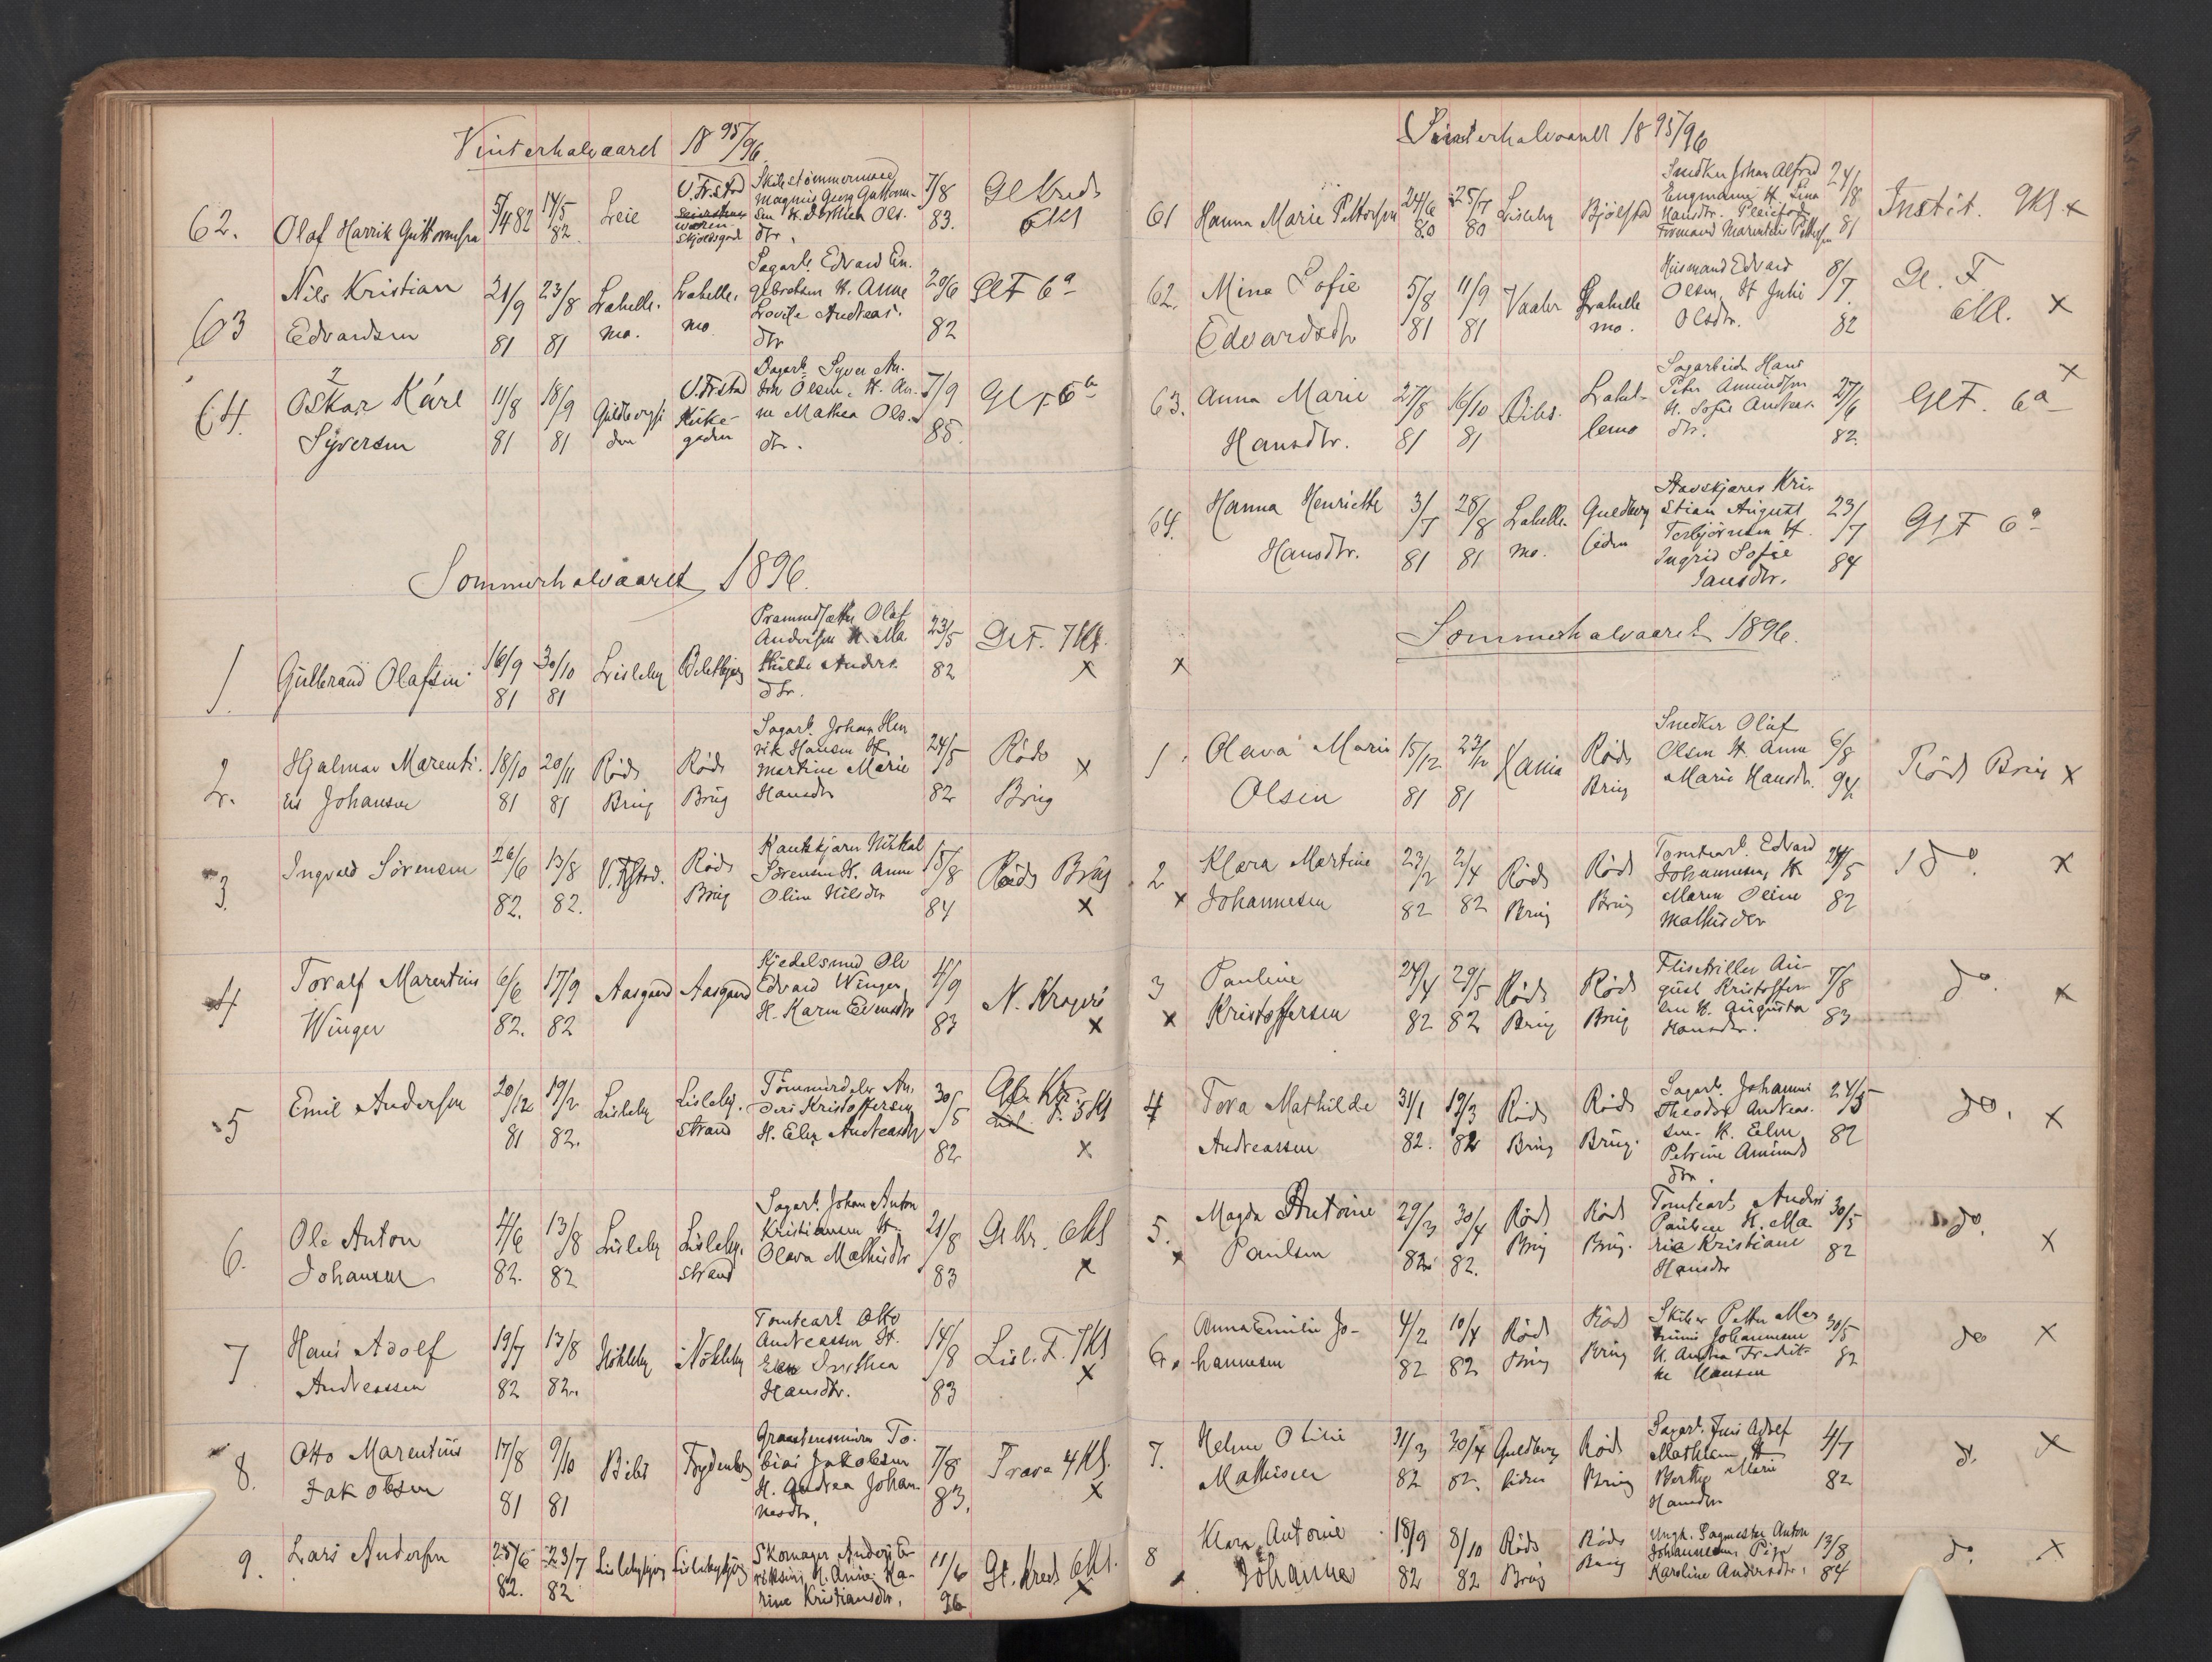 Vinterhalvaaret 18 95/96
62. Olaf Harrik Guttormsen 5/4 82 14/5 82 Leie V. Fr.stad Skibstømmermand Magnus Georg Guttormsen H. Dorthea Ols. dtr. 7/8 83. Gl Kreds 6Kl
63 Nils Kristian Edvardsen 21/9 81 23/8 81 Lahellemo. Lahellemo. Sagarb. Edvard Engebretsen H. Anne Lovise Andreas. dtr 20/6 82 Gl F 6a
64. Oskar Karl Syversen 11/8 81 18/9 81 Guldbergsiden V. Frstad Kirkegaden Dagarb. Syver An. Olsen. H. Anne Mathea Ols. dtr. 7/9 85. Gl F 6b
Sommerhalvaaret 1896.
1. Gulbrand Olafsen 16/9 81 30/10 81 Lisleby Pramudsætter Olaf Andersen H. Mathilde Anders. dtr. 23/5 82 Gl F. 7Kl. x
2. Hjalmar Marentius Johansen 18/10 81 20/11 81 Røds Brug Røds Brug Sagarb. Johan Henrik Hansen H. Martine Marie Hansdtr 24/5 82 Røds Brug x
3. Ingvald Sørensen 26/6 82. 13/8 82. V. Frstad. Røds Brug Sørensen H. Anne Oline Nilsdtr 15/8 84 Røds Brug x
4 Toralf Marentius Winger 6/6 82. 17/9 82 Aasgaard Aasgaard Kjedelsmed Ole Edvard Winger H. Karen Evensdtr 4/9 83 N. Kragerø x
5 Emil Andersen 20/12 81 19/2 82. Lisleby Lislebystrand Tømmerdeler Anders Kristoffersen H. Elen Andreasdtr 30/5 82 Gl. Kr. F. 5Kl x
6. Ole Anton Johansen 4/6 82. 13/8 82 Lisleby Lislebystrand Sagarb. Johan Anton Kristiansen H. Olava Mathisdtr 21/8 83 Gl Kr. 6Kl x
7 Hans Adolf Andreassen 19/7 82 13/8 82. Nøkleby Nøkleby Tomtearb Otto Andreassen H. Hansdtr. 14/8 83 Lisl. F. 7Kl x
8. Otto Marentius Jakobsen 17/8 81 9/10 81 Bibs Frydenberg Tobias Jakobsen H. Andrea Johannesdtr. 7/8 83. Trara 4Kl. x
9. Lars Andersen 25/6 82. 23/7 82 Lislebybjerg Lislebybjerg Skomager Anders Eriksen, H. Anne Karine Kristiansdtr. 11/6 96 Gl. Kreds 6Kl. x
Vinterhalvaaret 18 95/96
61 Hanna Marie Pettersen 24/6 80 25/7 80 Lisleby Bjølstad Snedker Johan Alfred Engmann H. Lina Hansdtr. Pleiefar Formand Marentius Pettersen 24/8 81 Instit. 7Kl x
62. Mina Sofie Edvardsdtr 5/8 81 11/9 81 Vaaler Lahellemo. Husmand Edvard Olsen, H Juli Olsdtr. 8/7 82 Gl. F. 6Kl. x
63. Anna Marie Hansdtr. 27/8 81 16/10 81 Bibs. Lahellemo Sagarbeider Hans Peter Amundsen H. Sofie Andreas. dtr. 27/6 82. Gl F. 6a x
64. Hanna Henriette Hansdtr. 3/7 81 28/8 81 Lahellemo. Guldbergsiden Stavskjærer Kristian August Torbjørnsen H. Ingrid Sofie Jansdtr. 23/7 84 Gl F 6a
Sommerhalvaaret 1896.
x
1. Olava Marie Olsen 15/12 81 81 Kania Røds Brug Snedker Olaf Olsen H. Anne Marie Hansdtr. 6/8 94 Røds Brug x
2 x Klara Martine Johannesen 23/2 82 2/4 82 Røds Brug Røds Brug Tomtearb. Edvard Johannesen, H Maren Oline Mathisdtr 24/5 82 do. x
3 x Pauline Kristoffersen 24/4 82 29/5 82 Røds Brug Røds Brug August Kristoffersen H. Augusta Hansdtr. 7/8 83 do. x
4 Tora Mathilde Andreassen 31/1 82. 19/3 82 Røds Brug Røds Brug. Sagarb. Johannes Theodor Andreassen. H. Elen Petrine Amundsdtr. 24/5 82 do. x
5. x Magda Antonie Paulsen 29/3 82. 30/4 82. Røds Brug Røds Brug. Tomtearb. Anders Paulsen H. Maria Kristiane Hansdtr 30/5 82 do. x
6. Anna Emilie Johannesen 4/2 82 10/4 82 Røds Brug Røds Brug Petter Johannesen H. Hansen 30/5 82 do x
7. Helene Otilie Mathisen 31/3 82 30/4 82. Guldbergsiden Røds Brug Sagarb. Jens Adolf Mathisen H Berthe Marie Hansdtr 4/7 82 do. x
8 Klara Antonie Johannes 18/9 82 8/10 82 Røds Brug Røds Brug Ungk. Sagmester Anton Johannesen Pige Karoline Andersdtr. 13/8 84 do. x